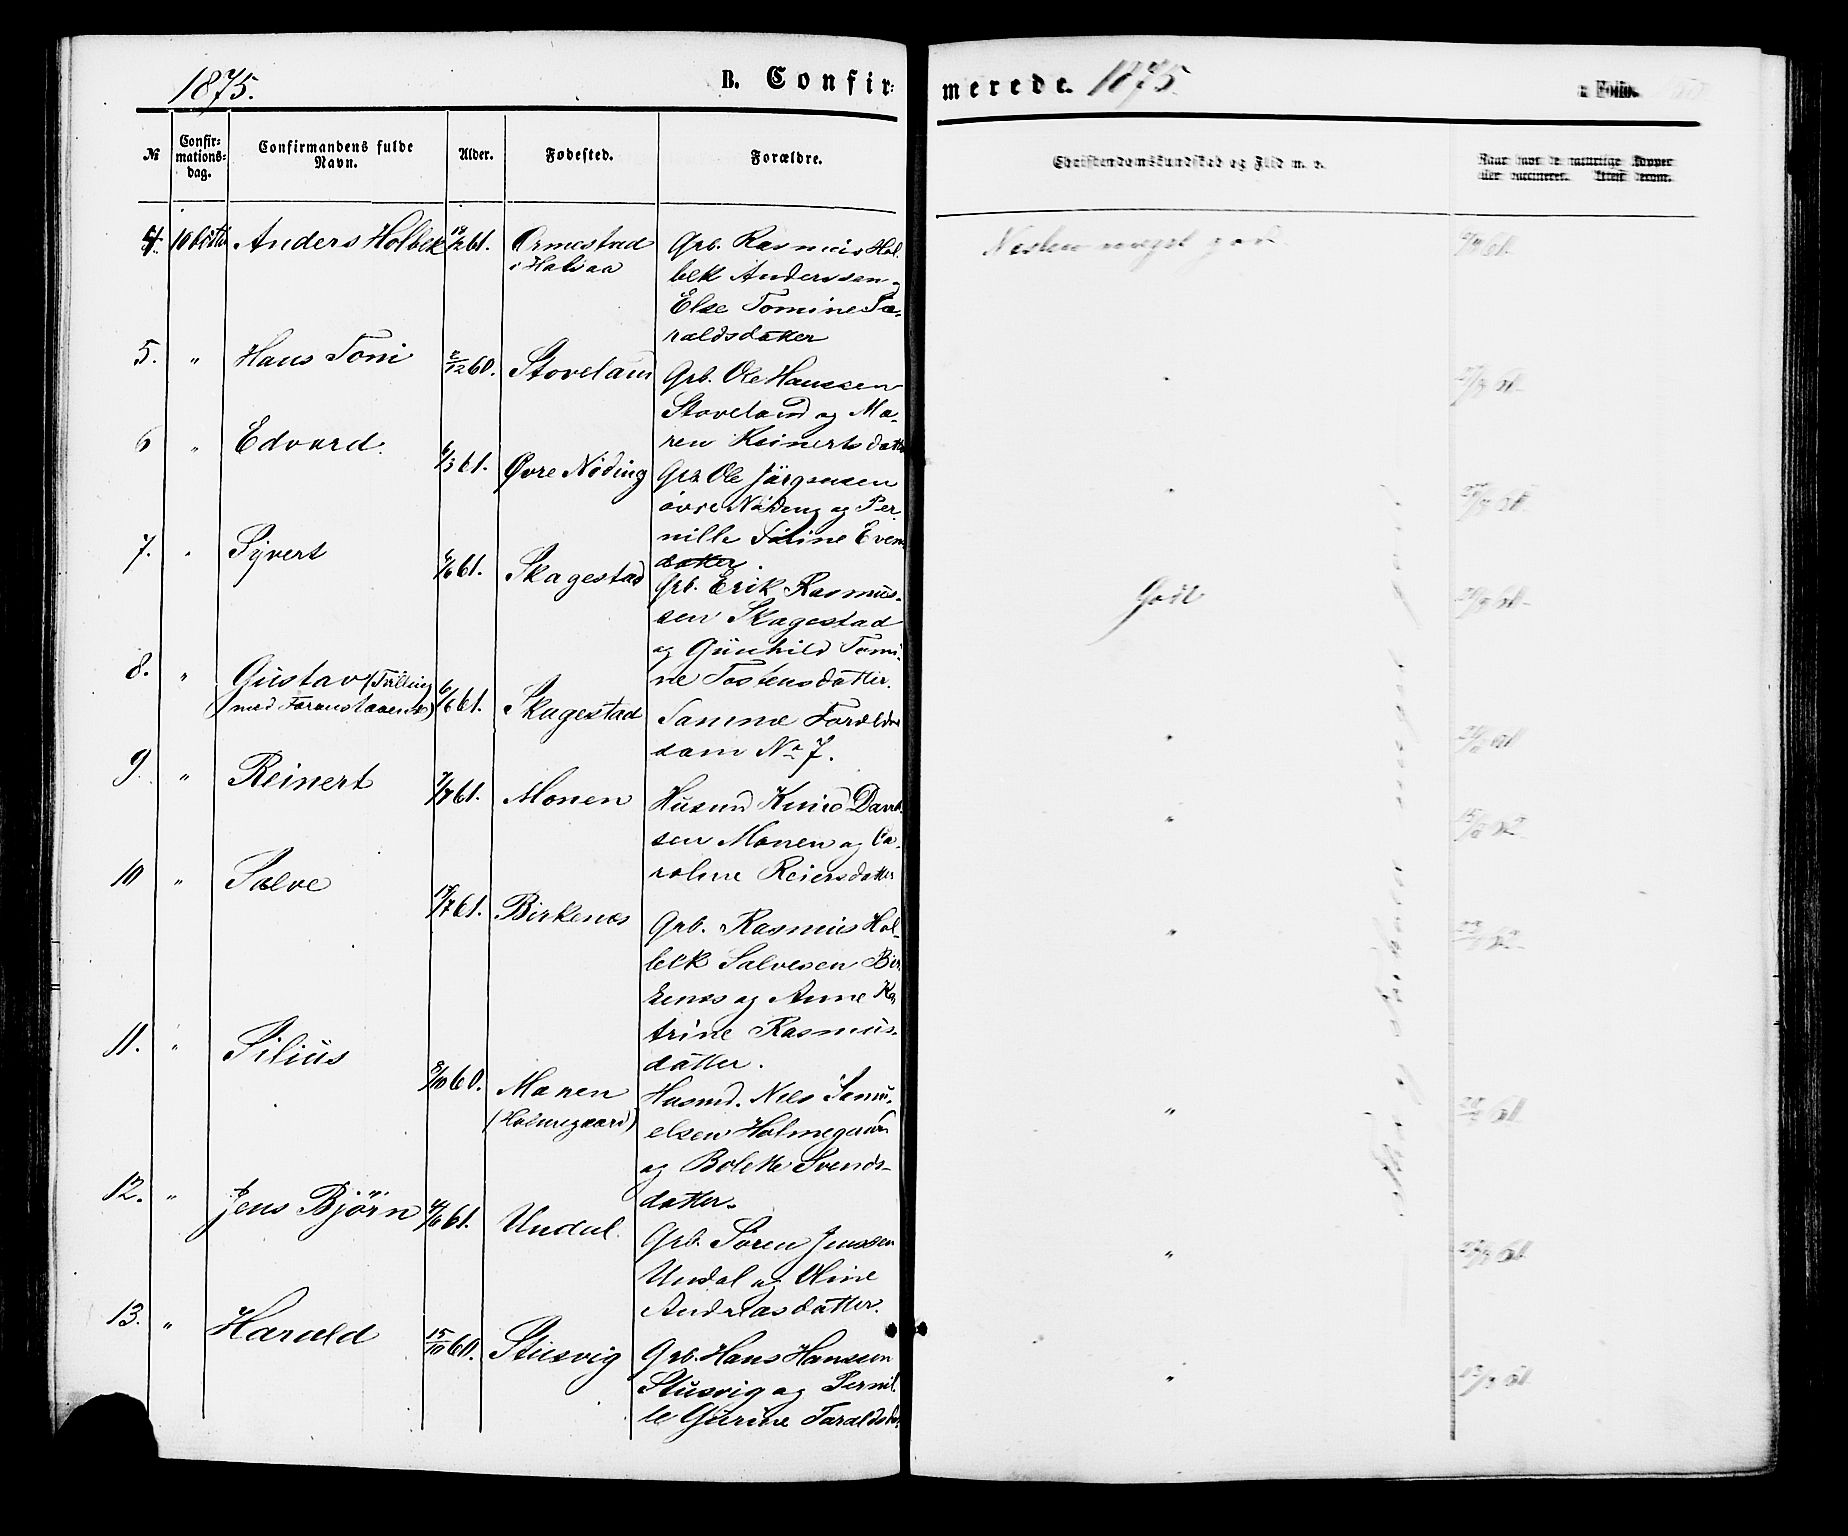 1875.
B. Confir-
merede. 1875
Folio.
№
Confir-
mations-
dag.
Confirmandens fulde
Navn.
Alder.
Fødested.
Forældre.
Christendomskundskab og Flid m. v.
Naar havt de naturlige Kopper
eller vaccineret. Attest derom.
4. Anders Holbek 61. Ormestad
i Halsaa
Grb. Rasmus Hol-
bek Anderssen og
Else Tomine Ta-
raldsdatter
Nesten meget godt
61.
5. " Hans Toni 2/12 60. Stoveland
Grb. Ole Hanssen
Stoveland og Ma-
ren Reinertsdatter
61.
6 " Edvard. /3 61. Øvre Nøding
Grb. Ole Jørgensen
øvre Nøding og Per-
nille Sirine Evens-
datter.
61.
7. " Syvert 6/6 61. Skagestad
Grb. Erik Rasmus-
sen Skagestad
og Gunhild Tomi-
ne Tostensdatter.
Godt
61.
8. " Gustav (Tvilling
med Foranstaaende) 6/6 61. Skagestad
Samme Forældre
som No 7.
"
61
9 " Reinert 61. Monen
Husmd Knud Davids-
sen Monen og Ca-
roline Reiersdatter
"
62
10 " Salve /7 61. Birkenes
Grb. Rasmus Hol-
bek Salvesen Bir-
kenes og Anne Ka-
trine Rasmus-
datter.
"
62
11. " Silius /10 60. Monen
(Holmegaard)
Husmd. Nils Samu-
elsen Holmegaard
og Bolette Svends-
datter.
"
61
12. " Jens Bjørn /6 61. Undal.
Grb. Søren Jenssen
Undal og Oline
Andreasdatter.
"
61.
13. " Harald 15/10 60. Stusvig
Grb. Hans Hanssen
Stusvig og Pernil-
le Gurine Taraldsdat.
"
61.